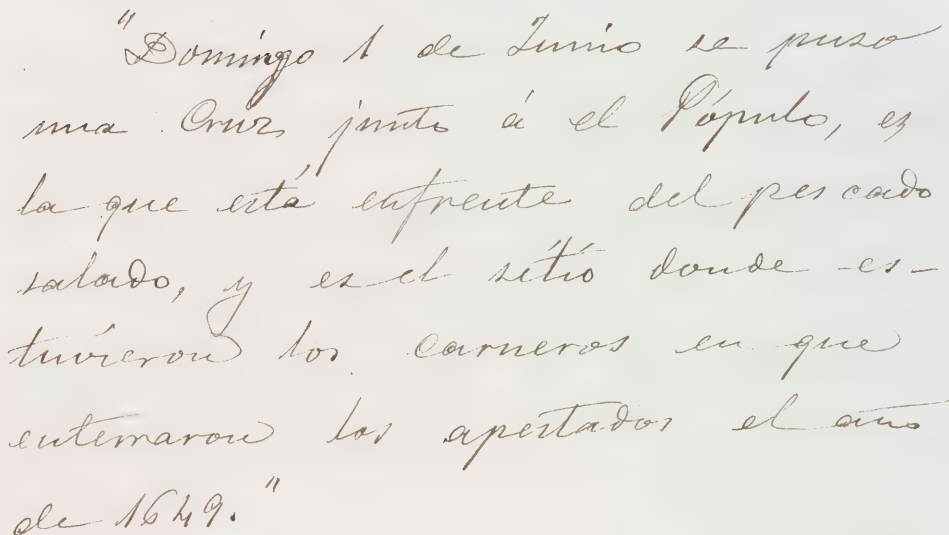 "Domingo 1 de Junio se puso
una Cruz junto á el Pópulo, es
la que está enfrente del pescado
salado, y es el sitio donde es-
tuvieron los carneros en que
enterraron los apestados el año
de 1649."